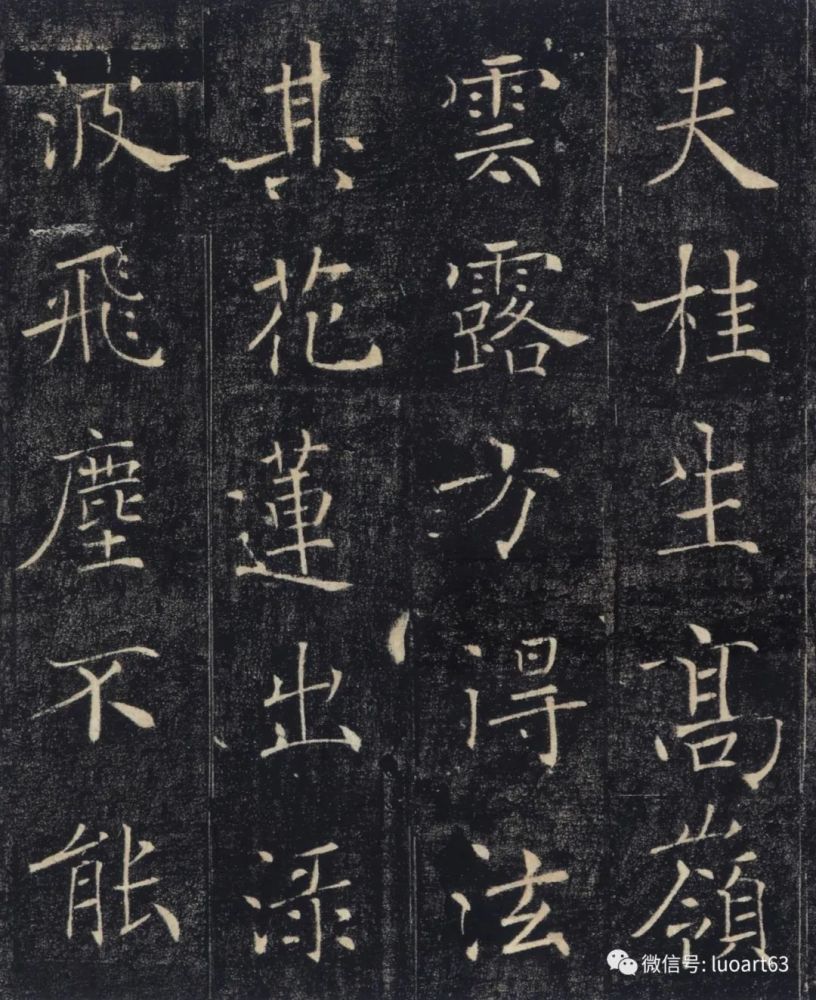 夫桂生高嶺
雲露方得泫
其花蓮出渌
波飛塵不能
微信号: luoart63